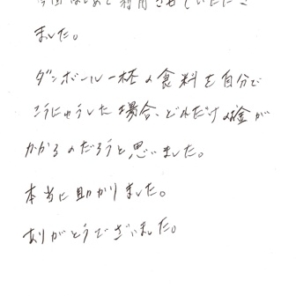 今回はじめて利用させていただき
ました。
ダンボール一杯の食料を自分で
こうにゅうした場合、どれだけお金が
かかるのだろうと思いました。
本当に助かりました。
ありがとうございました。